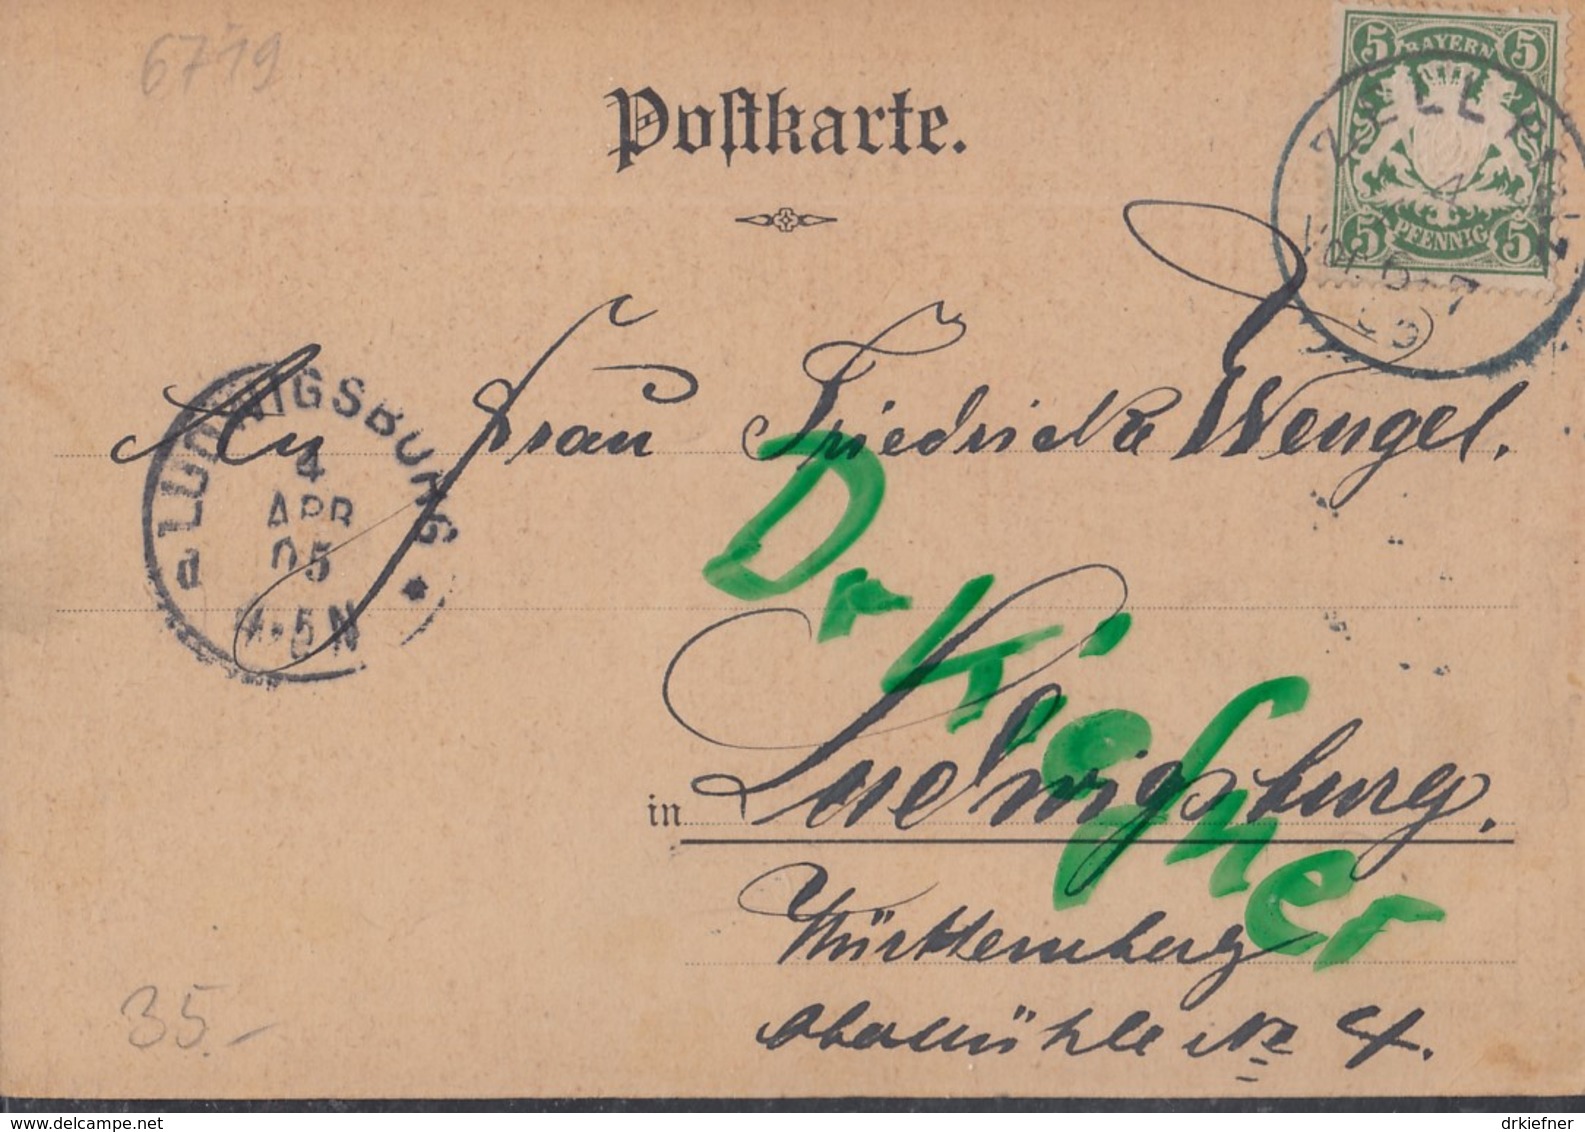 6719
Postkarte.
5 BAYERN 5
5 PFENNIG 5
LUDWIGSBURG
4
APR
05
4-5N
d
An Frau Friedricka Wengel.
in Ludwigsburg.
Württemberg
No 4.
Dr Kiefner
35.-
delcampe.net
drkiefner